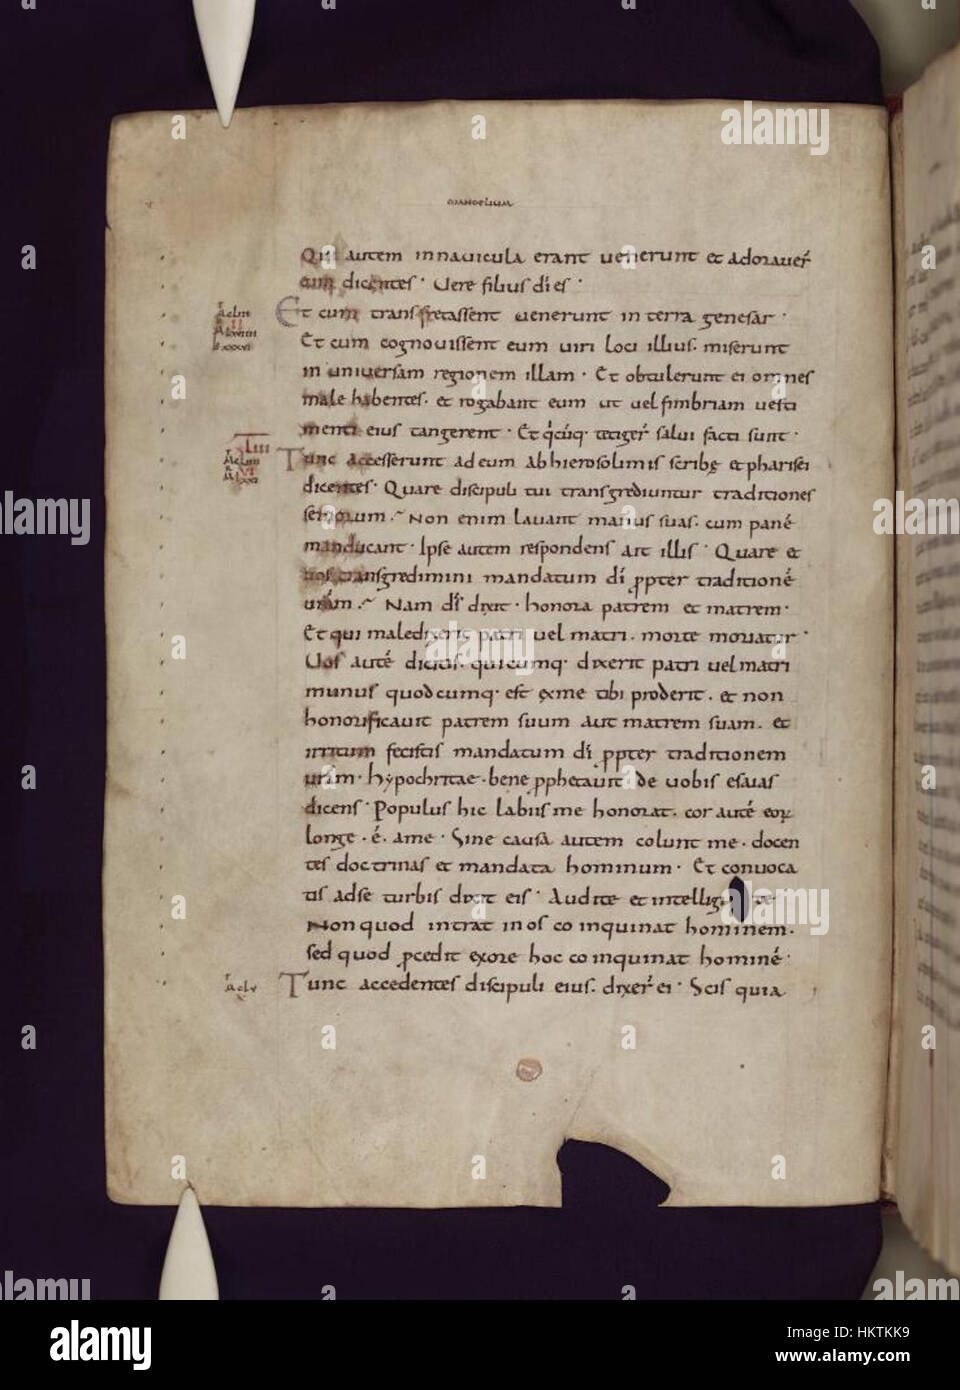 Qui autem in navicula erant venerunt et adoraver̄
eum dicentes · Vere filius di es ·
Et cum transfretassent venerunt in terra genesar ·
Et cum cognovissent eum viri loci illius. miserunt
in universam regionem illam · Et obtulerunt ei omnes
male habentes. et rogabant eum ut vel fimbriam vesti
menti eius tangerent · Et q̇cūq· tetiger̄ salvi facti sunt ·
Tunc accesserunt ad eum ab hierosolimis scribę et pharisei
dicentes · Quare discipuli tui transgrediuntur traditiones
seniorum. Non enim lavant manus suas. cum panē
manducant · Ipse autem respondens ait illis · Quare et
vos transgredimini mandatum dī ꝓpter traditionē
vr̄am. Nam ds̄ dixit · honora patrem et matrem ·
Et qui maledixerit patri vel matri. morte moriatur ·
Vos autē dicitis. quicumq· dixerit patri vel matri
munus quodcumq· est ex me tibi proderit. et non
honorificavit patrem suum aut matrem suam. et
irritum fecistis mandatum dī ꝓpter traditionem
vr̄am · hypochritae · bene ꝓphetavit de vobis esaias
dicens · Populus hic labiis me honorat. cor autē eoꝝ
longe · ē · a me · Sine causa autem colunt me · docen
tes doctrinas et mandata hominum · Et convoca
tis ad se turbis dixit eis · Audite et intelligite
Non quod intrat in os coinquinat hominem.
sed quod ꝓcedit ex ore hoc coinquinat hominē ·
Tunc accedentes discipuli eius. dixer̄ ei · Scis quia
alamy
a
HKTKK9
www.alamy.com